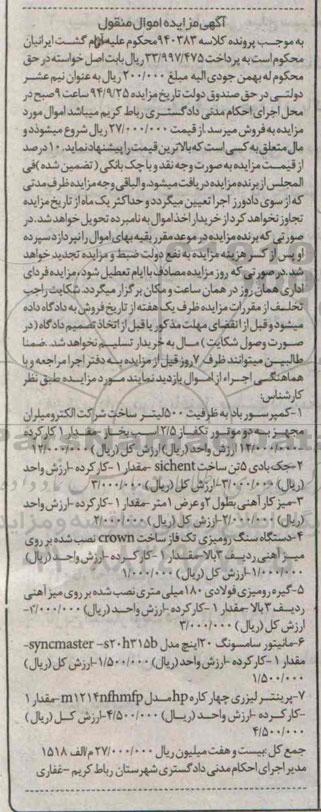 آگهی مزایده اموال منقول
به موجب پرونده کلاسه ۹۴۰۳۸۳ محکوم علیه آرام گشت ایرانیان
محکوم است به پرداخت ۳۳/۹۹۷/۴۷۵ ریال بابت اصل خواسته در حق
محکوم له بهمن جودی الیه مبلغ ۲۰۰/۰۰۰ ریال به عنوان نیم عشر
دولتی در حق صندوق دولت تاریخ مزایده ۹۴/۹/۲۵ ساعت ۹ صبح در
محل اجرای احکام مدنی دادگستری رباط کریم میباشد اموال مورد
مزایده به فروش میرسد. از قیمت ۲۷/۰۰۰/۰۰۰ ریال شروع میشود و
مال متعلق به کسی است که بالاترین قیمت را پیشنهاد نماید. ۱۰ درصد
از قیمت مزایده به صورت وجه نقد و یا چک بانکی (تضمین شده) فی
المجلس از برنده مزایده دریافت میشود. و الباقی وجه مزایده ظرف مدتی
که از سوی دادورز اجرا تعیین میگردد و حداکثر یک ماه از تاریخ مزایده
تجاوز نخواهد کرد از خریدار اخذ اموال به نامبرده تحویل خواهد شد. در
صورتی که برنده مزایده در موعد مقرر بقیه بهای اموال را نپردازد سپرده
او پس از کسر هزینه مزایده به نفع دولت ضبط و مزایده تجدید خواهد
شد. در صورتی که روز مزایده مصادف با ایام تعطیل شود، مزایده فردای
اداری همان روز در همان ساعت و مکان برگزار میگردد. شکایت راجب
تخلف از مقررات مزایده ظرف یک هفته از تاریخ فروش به دادگاه داده
میشود و قبل از انقضای مهلت مذکور یا قبل از اتخاذ تصمیم دادگاه (در
صورت وصول شکایت) مال به خریدار تسلیم نخواهد شد. ضمنا
طالبین میتوانند ظرف ۷ روز قبل از مزایده به دفتر اجرا مراجعه و با
هماهنگی اجراء از اموال بازدید نمایند مورد مزایده طبق نظر
کارشناس:
۱-کمپرسور باد به ظرفیت ۵۰۰ لیتر ساخت شرکت الکترومیلران
مجهز به دو موتور تکفاز ۲/۵ اسب بخار -مقدار ۱ کارکرده
۱۲/۰۰۰/۰۰۰ ارزش واحد (ریال) ارزش کل (ریال) ۱۲/۰۰۰/۰۰۰
۲-جک بادی ۵ تن ساخت sichent -مقدار ۱ -کارکرده -ارزش واحد
(ریال) ۳/۰۰۰/۰۰۰-ارزش کل (ریال) ۳/۰۰۰/۰۰۰
۳-میز کار آهنی بطول ۲ و عرض ۱ متر -مقدار ۱ -کارکرده -ارزش واحد
(ریال) ۲/۰۰۰/۰۰۰-ارزش کل (ریال) ۲/۰۰۰/۰۰۰
۴-دستگاه سنگ رومیزی تک فاز ساخت crown نصب شده بر روی
میز آهنی ردیف ۳ بالا -مقدار ۱ -کارکرده -ارزش واحد (ریال)
۱/۰۰۰/۰۰۰-ارزش کل (ریال) ۱/۰۰۰/۰۰۰
۵-گیره رومیزی فولادی ۱۸۰ میلی متری نصب شده بر روی میز آهنی
ردیف ۳ بالا -مقدار ۱ -کارکرده -ارزش واحد (ریال) -
ارزش کل (ریال) ۳/۰۰۰/۰۰۰
۶-مانیتور سامسونگ ۲۰ اینچ مدل syncmaster -s۲۰h۳۱۵b-
مقدار ۱ -کارکرده -ارزش واحد (ریال) ۱/۵۰۰/۰۰۰-ارزش کل (ریال)
۱/۵۰۰/۰۰۰
۷-پرینتر لیزری چهار کاره hp مدل m۱۲۱۴nfhmfp -مقدار ۱
-کارکرده -ارزش واحد (ریال) ۴/۵۰۰/۰۰۰-ارزش کل (ریال)
۴/۵۰۰/۰۰۰
جمع کل: بیست و هفت میلیون ریال ۲۷/۰۰۰/۰۰۰ م/الف ۱۵۱۸
مدیر اجرای احکام مدنی دادگستری شهرستان رباط کریم -غفاری